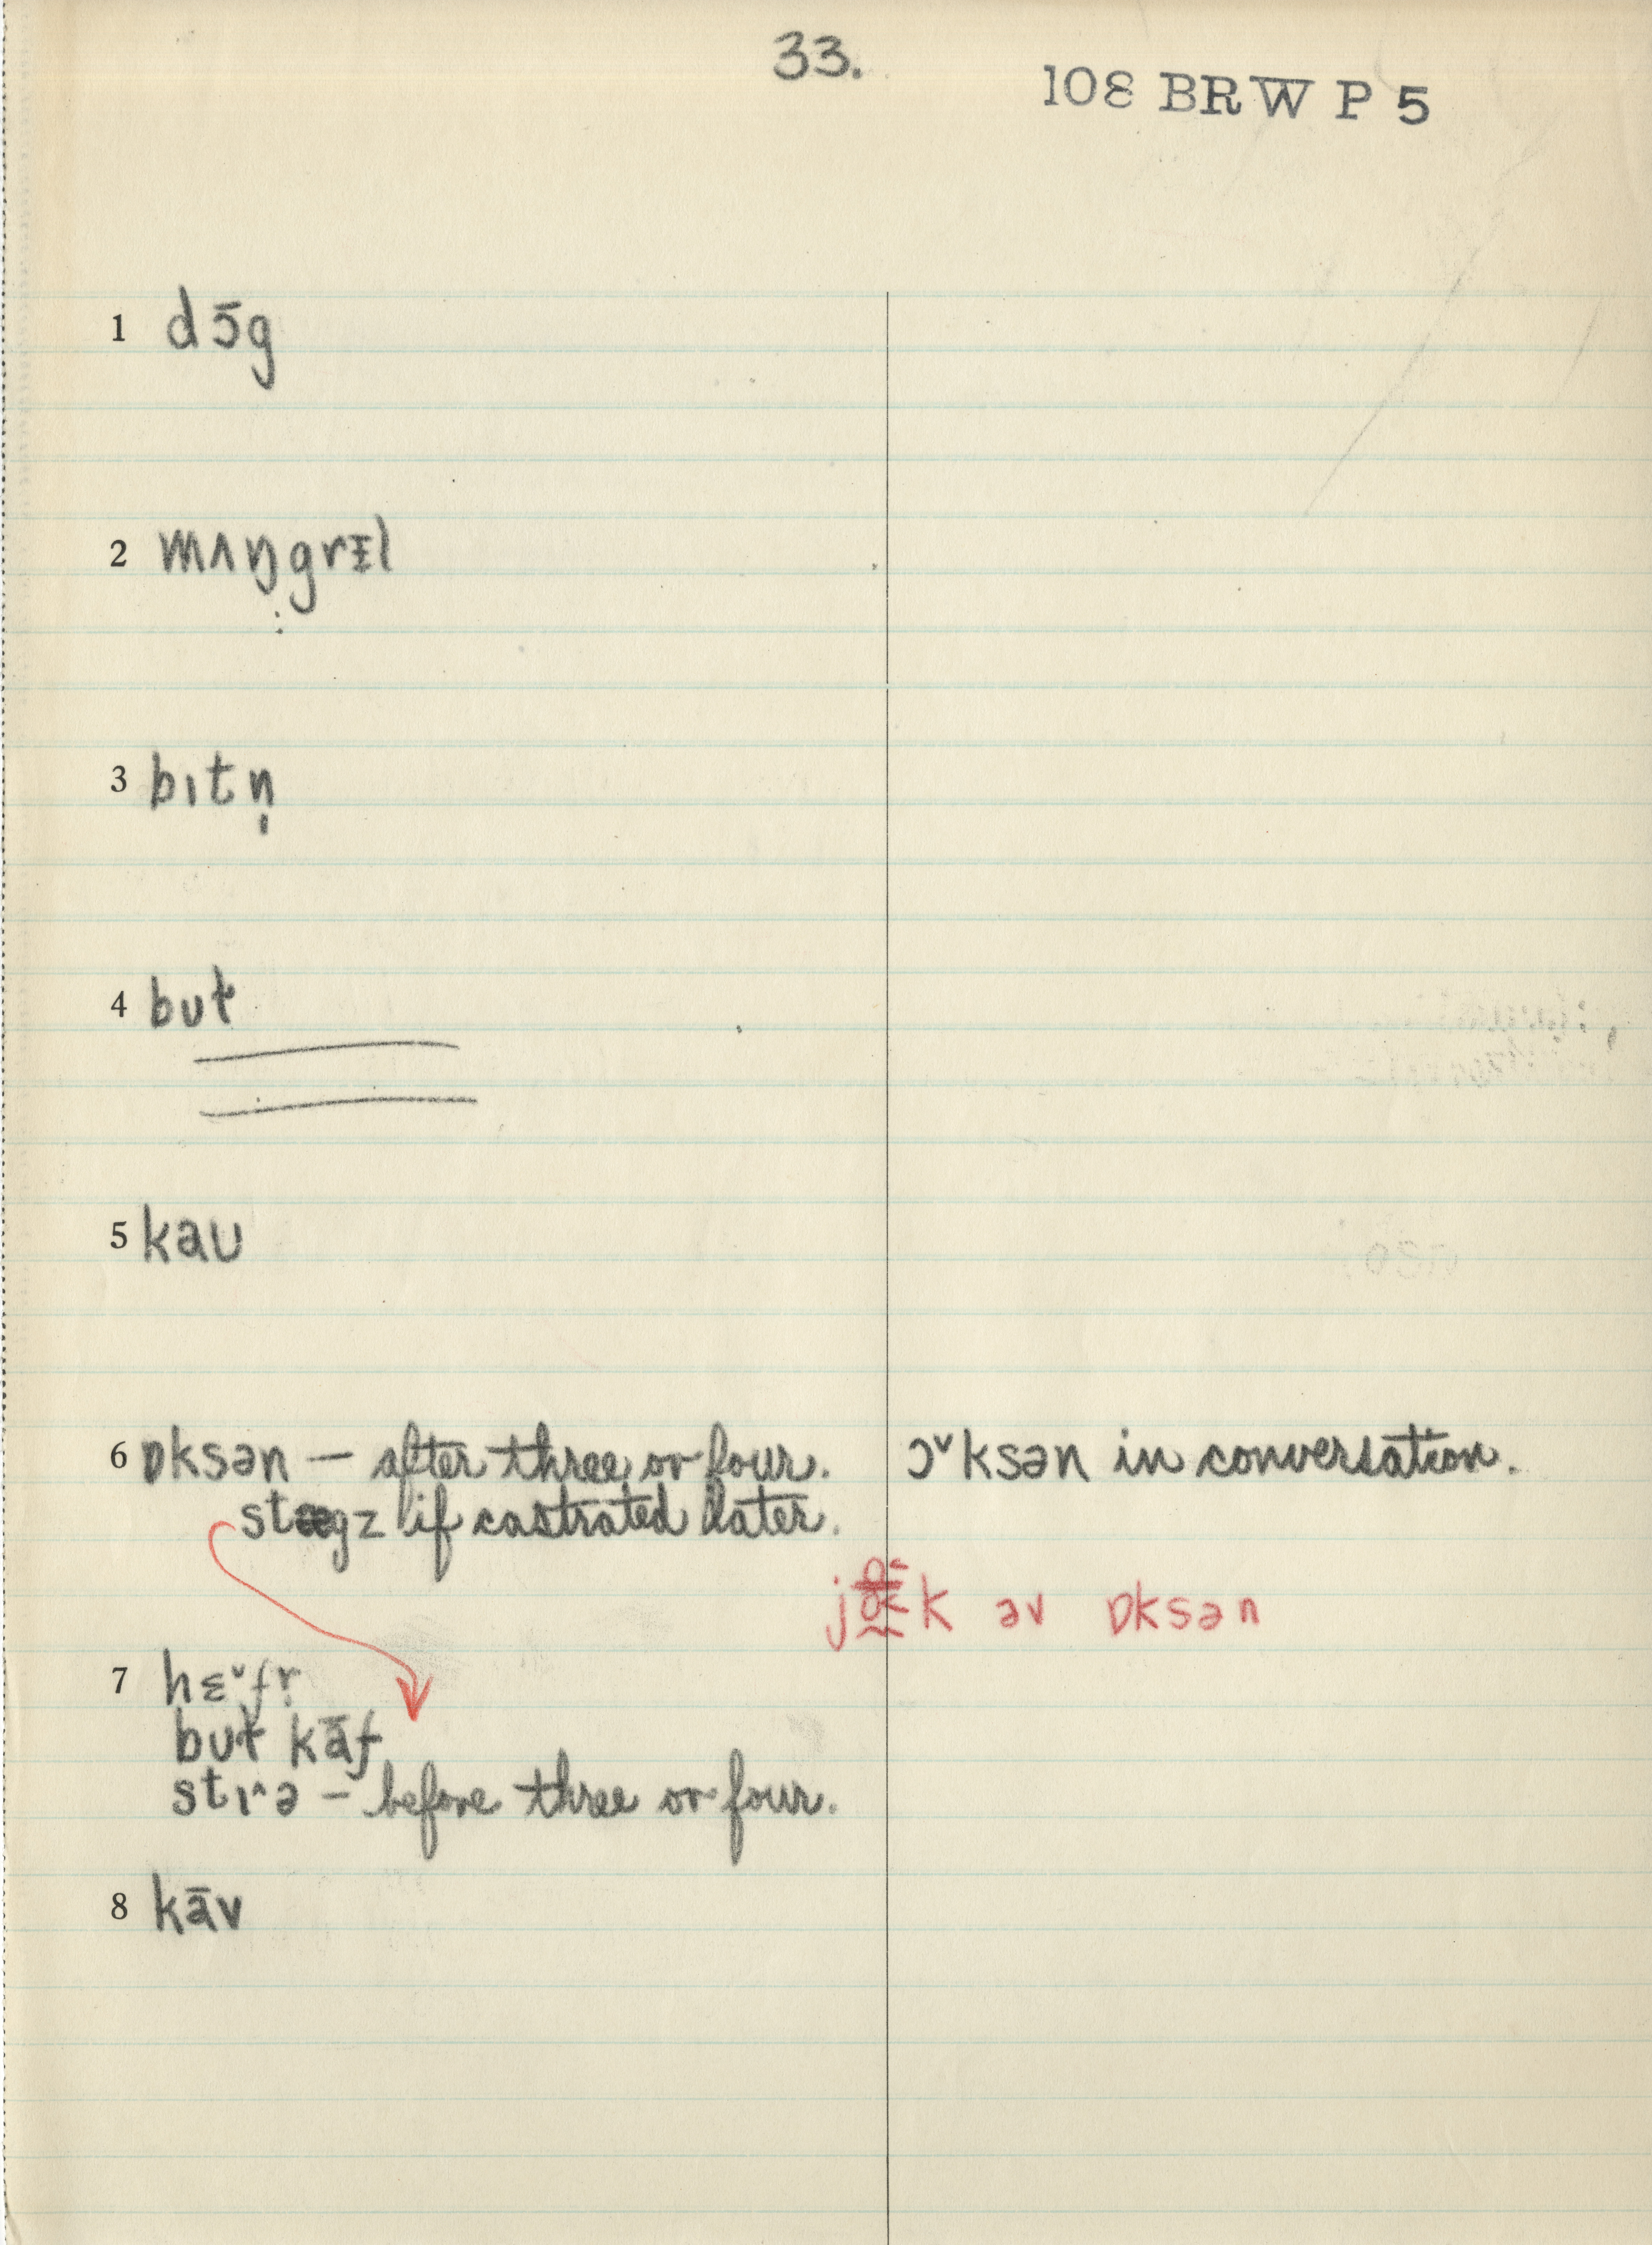 33.
108 BRW P 5
1 dɔ̄g
2 mʌŋgrɪl
3 bɪtn̩
4 bʊt
5 kaʊ
6 ɒksən — after three or four. ɔ˅ksən in conversation.
stægz if castrated later.
k əv ɒksən
7 hɛ˅fr̩
bʊt kāf
stɪ˄ə — before three or four.
8 kāv